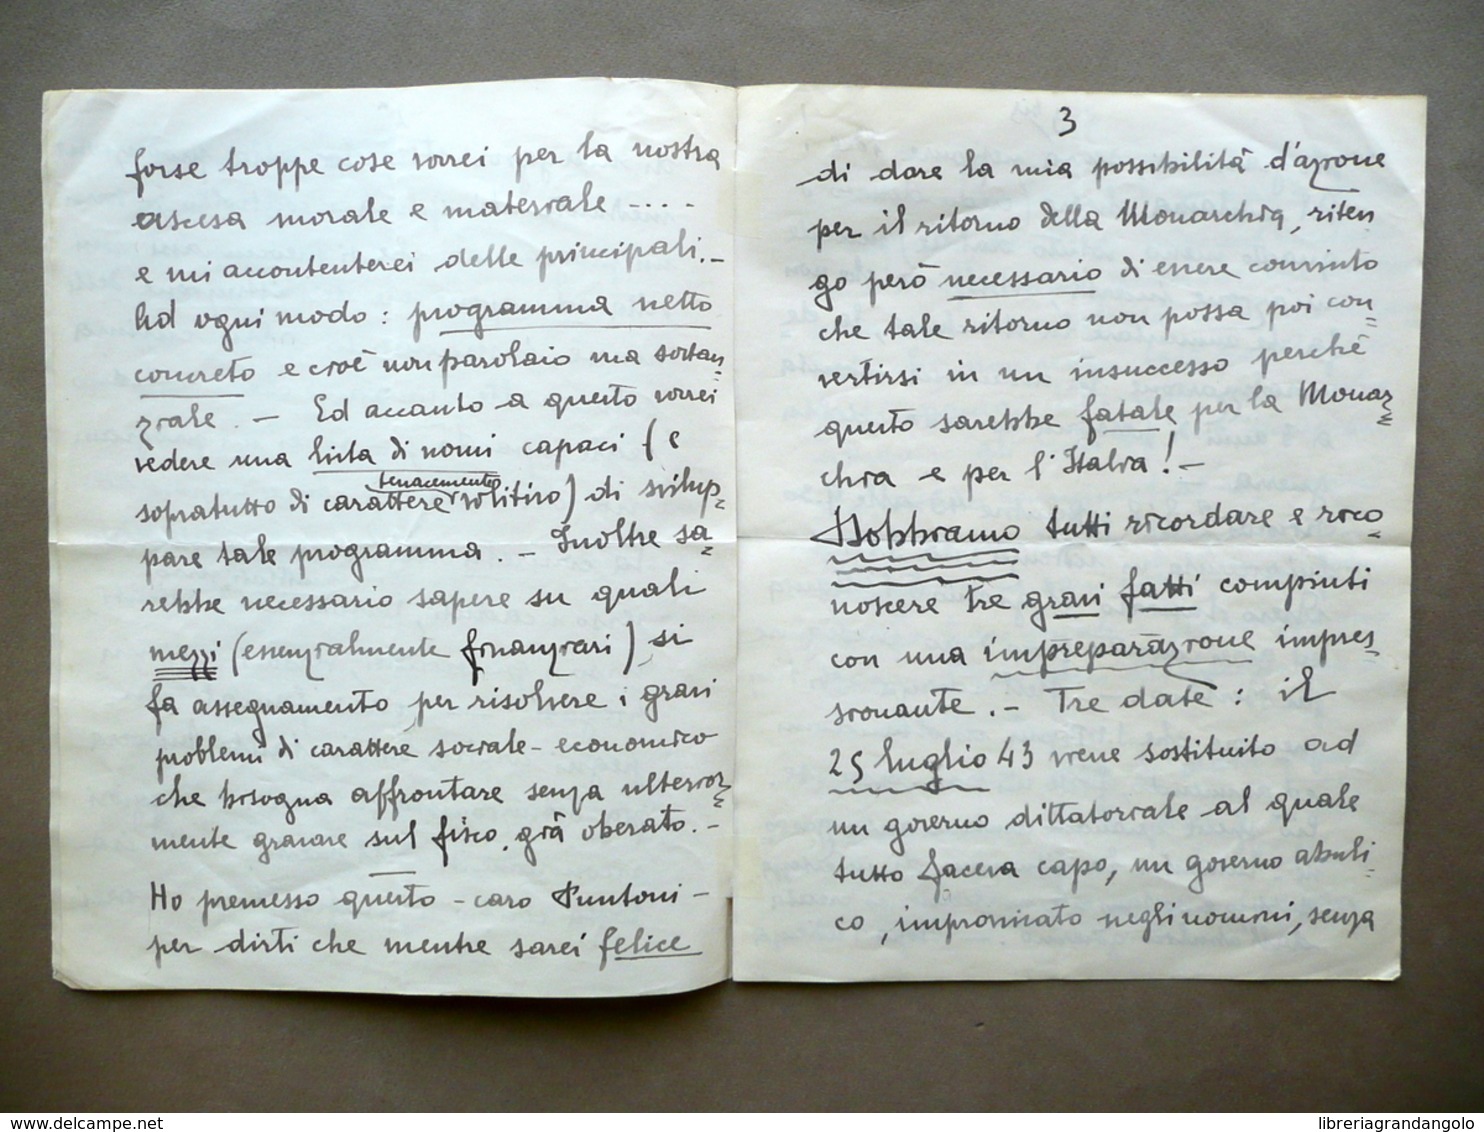 forse troppe cose vorrei per la nostra
ascesa morale e materiale - . . . -
e mi accontenterei delle principali. -
Ad ogni modo: programma netto
concreto e cioè non parolaio ma sostan=
ziale. - Ed accanto a questo vorrei
vedere una lista di nomi capaci (e
tenacemente
sopratutto di carattere volitivo) di svilup=
pare tale programma. - Inoltre sa=
rebbe necessario sapere su quali
mezzi (essenzialmente finanziari) si
fa assegnamento per risolvere i gravi
problemi di carattere sociale-economico
che bisogna affrontare senza ulterior=
mente gravare sul fisco, già oberato. -
Ho premesso questo - caro Puntoni -
per dirti che mentre sarei felice
3
di dare la mia possibilità d'azione
per il ritorno della Monarchia, riten
go però necessario di essere convinto
che tale ritorno non possa poi con=
vertirsi in un insuccesso perchè
questo sarebbe fatale per la Monar=
chia e per l'Italia! -
Dobbiamo tutti ricordare e rico=
noscere tre gravi fatti compiuti
con una impreparazione impres=
sionante. - Tre date: il
25 luglio 43 viene sostituito ad
un governo dittatoriale al quale
tutto faceva capo, un governo abuli=
co, improvvisato negli uomini, senza
delcampe.net
libreriagrandangolo